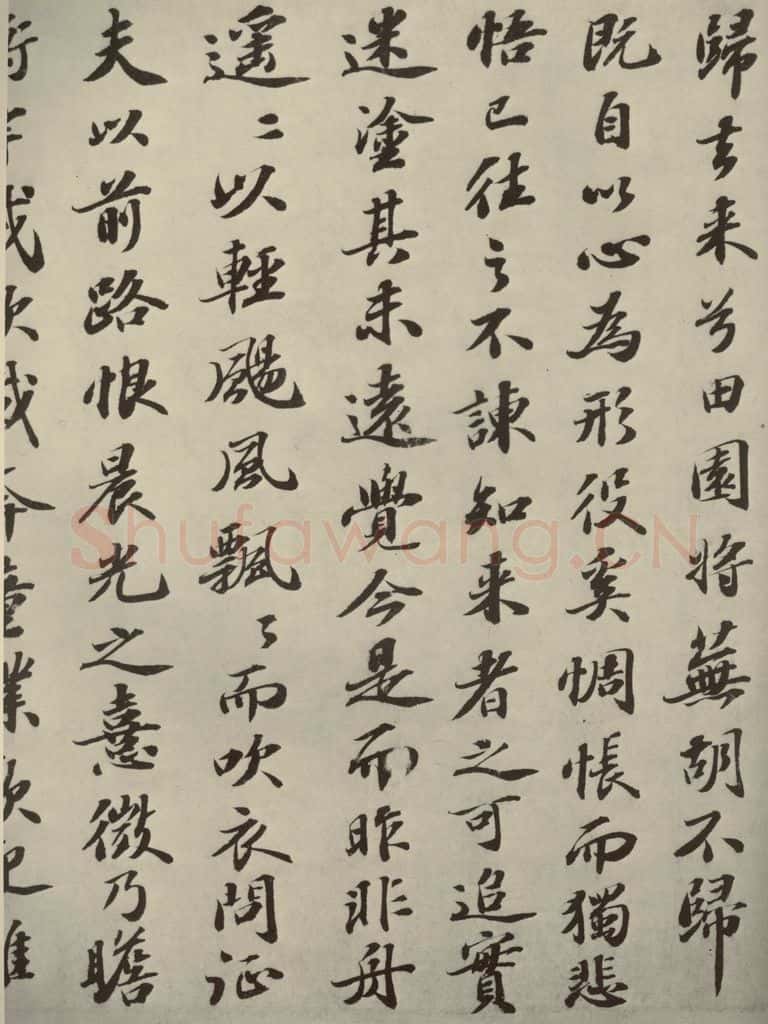 歸去来兮田園将蕪胡不歸
既自以心為形役奚惆悵而獨悲
悟已往之不諫知来者之可追實
迷塗其未遠覺今是而昨非舟
遥〻以輕颺風飄〻而吹衣問征
夫以前路恨晨光之熹微乃瞻
Shufawang.CN